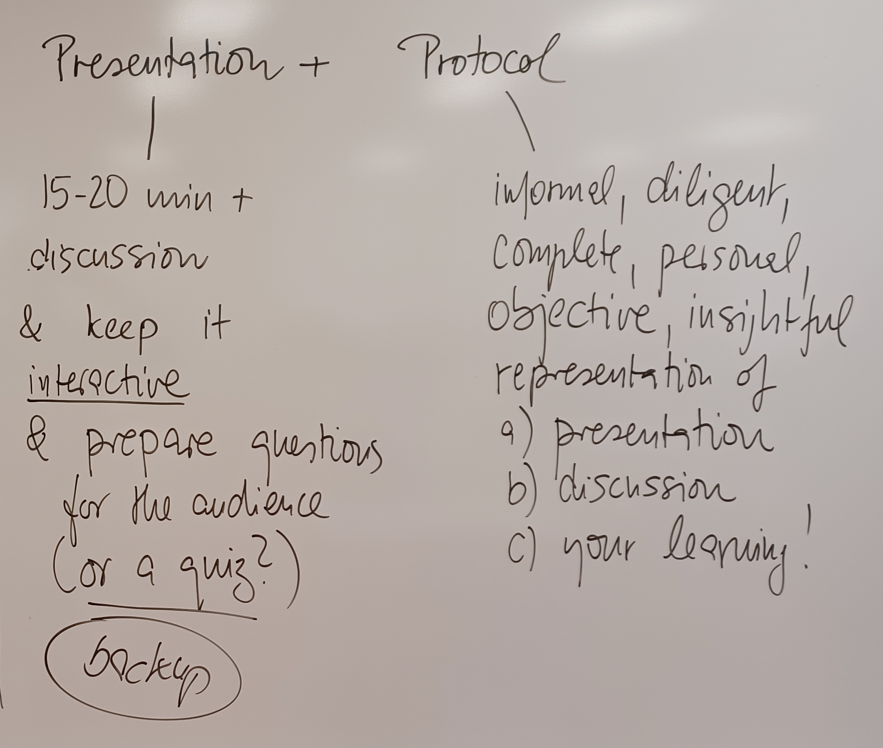 Presentation + Protocol
15-20 min +
discussion
& keep it
interactive
& prepare questions
for the audience
(or a quiz?)
backup
informal, diligent,
complete, personal,
objective, insightful
representation of
a) presentation
b) discussion
c) your learning!